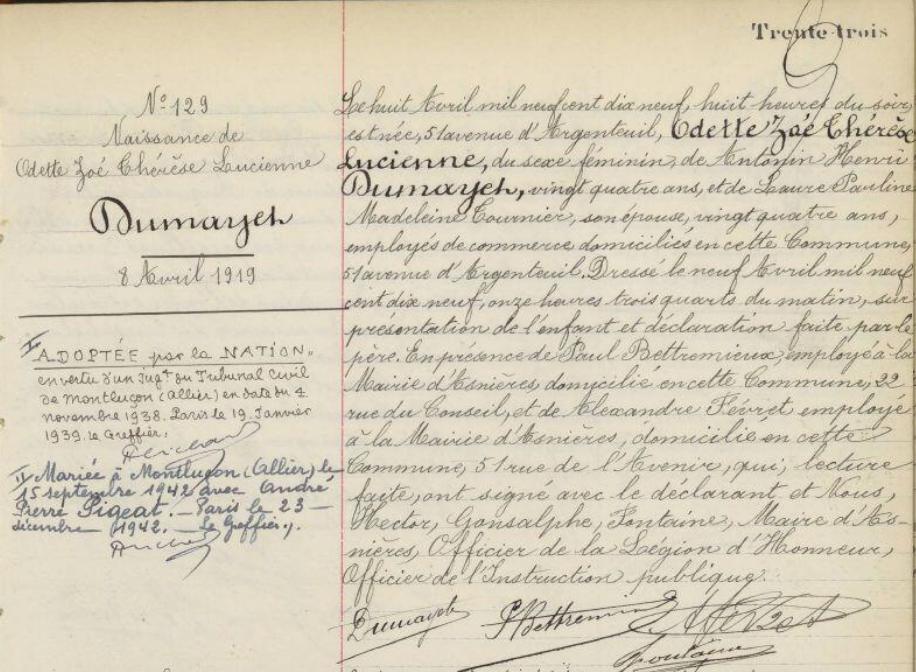 Trente-trois
N° 129
Naissance de
Odette Zoé Thérèse Lucienne
Dumayet
8 Avril 1919
I ADOPTÉE par la NATION"
en vertu d'un Jugt du Tribunal Civil
de Montluçon (Allier) en date du 4
novembre 1938. Paris le 19 Janvier
1939. le Greffier.
II Mariée à Montluçon (Allier) le
15 septembre 1942 avec André
Pierre Pigeat. _ Paris le 23 _
décembre 1942. _ Le Greffier.
Le huit Avril mil neuf cent dix neuf, huit heures du soir,
est née, 51 avenue d'Argenteuil, Odette Zoé Thérèse
Lucienne, du sexe féminin, de Antonin Henri
Dumayet, vingt quatre ans, et de Laure Pauline
Madeleine Tournier, son épouse, vingt quatre ans,
employés de commerce domiciliés en cette Commune,
51 avenue d'Argenteuil. Dressé le neuf Avril mil neuf
cent dix neuf, onze heures trois quarts du matin, sur
présentation de l'enfant et déclaration faite par le
père. En présence de Paul Bettremieux, employé à la
Mairie d'Asnières, domicilié en cette Commune, 22
rue du Conseil, et de Alexandre Févret employé
à la Mairie d'Asnières, domicilié en cette
Commune, 51 rue de l'Avenir, qui, lecture
faite, ont signé avec le déclarant, et Nous,
Hector, Gonsalphe, Fontaine, Maire d'As-
nières, Officier de la Légion d'Honneur,
Officier de l'Instruction publique.
Dumayet PBettremieux AFévret
Fontaine